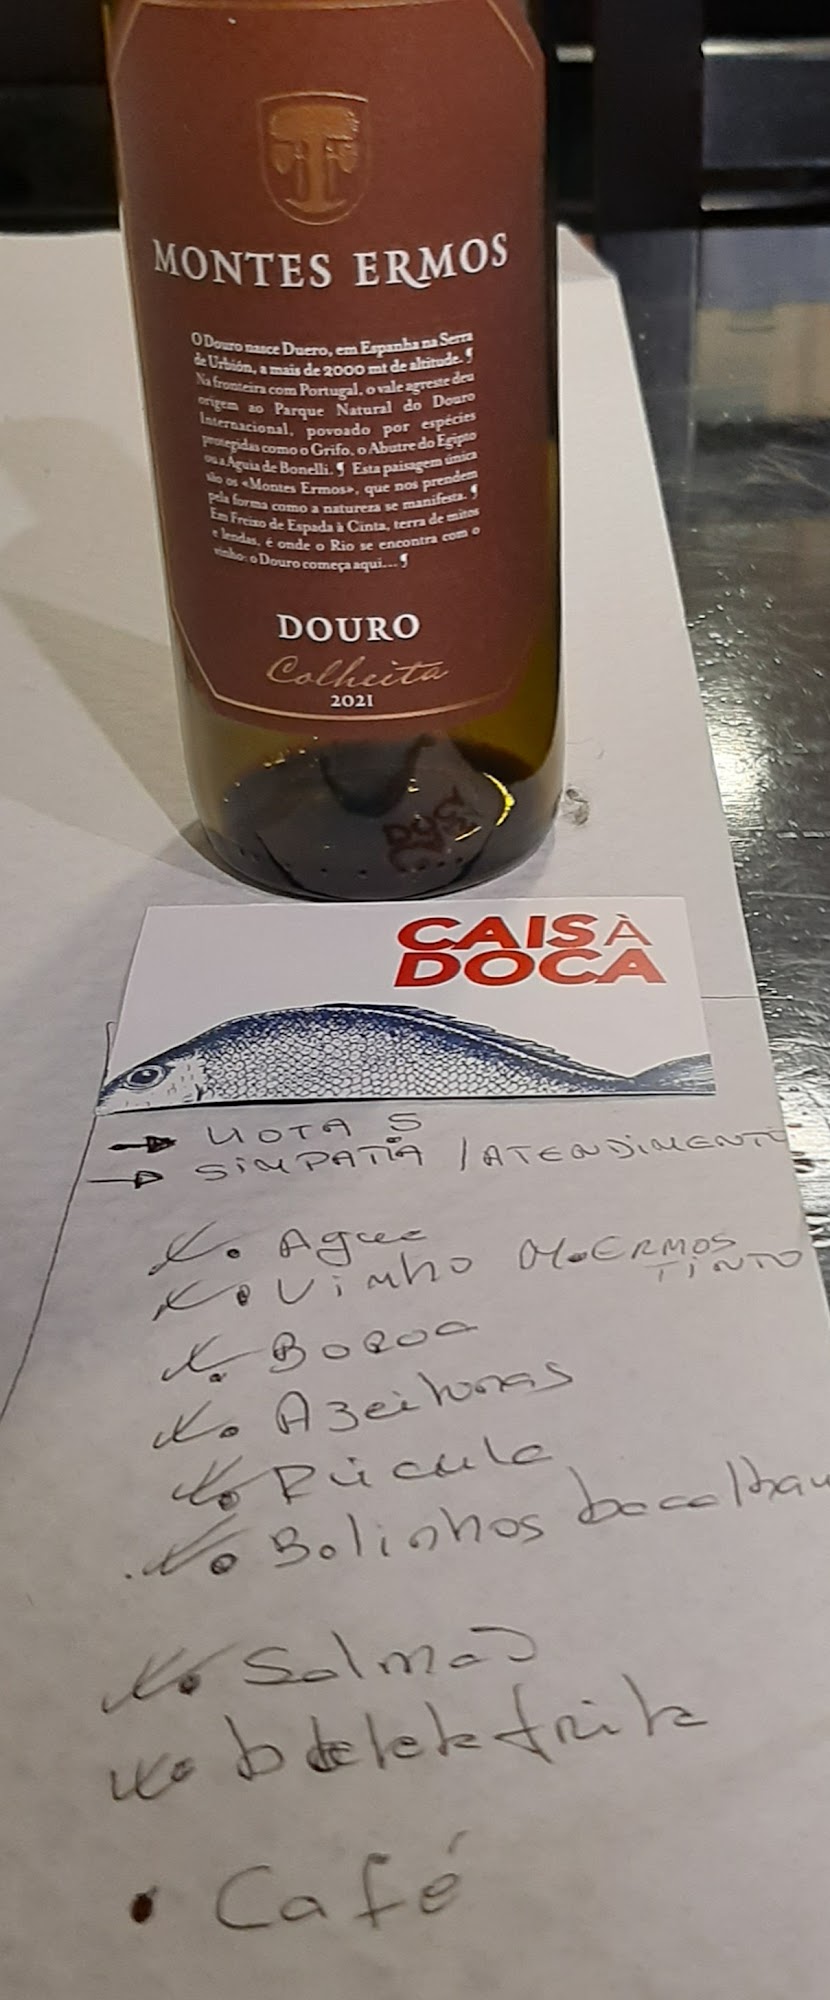 MONTES ERMOS
O Douro nasce Duero, em Espanha na Serra
de Urbión, a mais de 2000 mt de altitude. ¶
Na fronteira com Portugal, o vale agreste deu
origem ao Parque Natural do Douro
Internacional, povoado por espécies
protegidas como o Grifo, o Abutre do Egipto
ou a Águia de Bonelli. ¶ Esta paisagem única
são os «Montes Ermos», que nos prendem
pela forma como a natureza se manifesta. ¶
Em Freixo de Espada à Cinta, terra de mitos
e lendas, é onde o Rio se encontra com o
vinho: o Douro começa aqui... ¶
DOURO
Colheita
2021
CAIS À
DOCA
NOTA 5
SIMPATIA / ATENDIMENTO
Agua
Vinho M. ERMOS
TINTO
Boroa
Azeitonas
Rúcula
Bolinhos bacalhau
Salmão
batata frita
Café